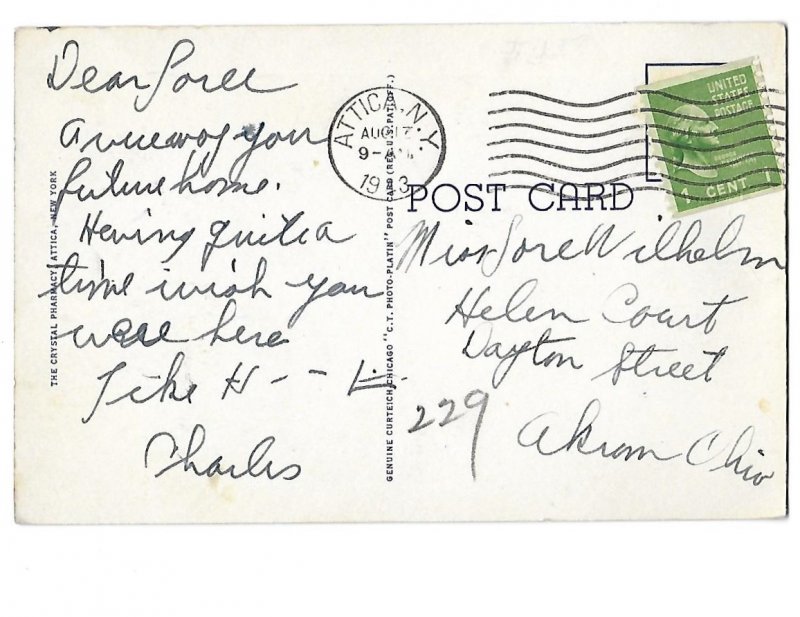 Dear Soree
A view of your
future home.
Having quite a
time wish you
were here
Like H - - L.
Charles
THE CRYSTAL PHARMACY, ATTICA, NEW YORK
GENUINE CURTEICH-CHICAGO "C.T. PHOTO-PLATIN" POST CARD (REG. U.S. PAT. OFF.)
ATTICA, N.Y.
AUG 17
9-
19 3
UNITED
STATES
POSTAGE
1 CENT 1
POST CARD
Miss Sore Wilhelm
Helen Court
Dayton Street
229
Akron Ohio